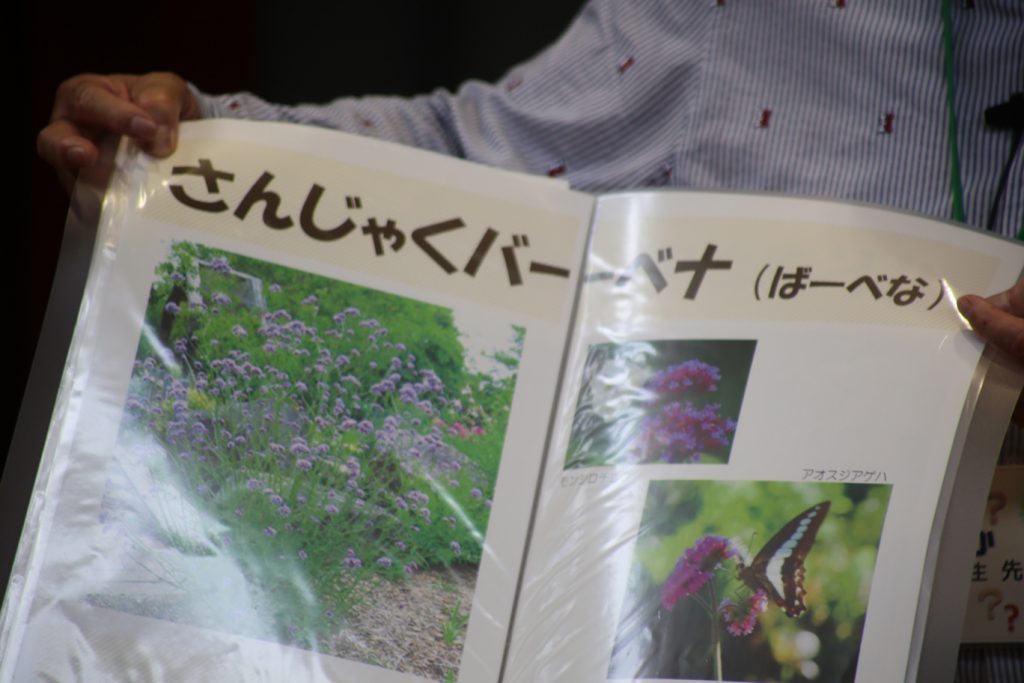 さんじゃくバーベナ (ばーべな)
アオスジアゲハ
生 先